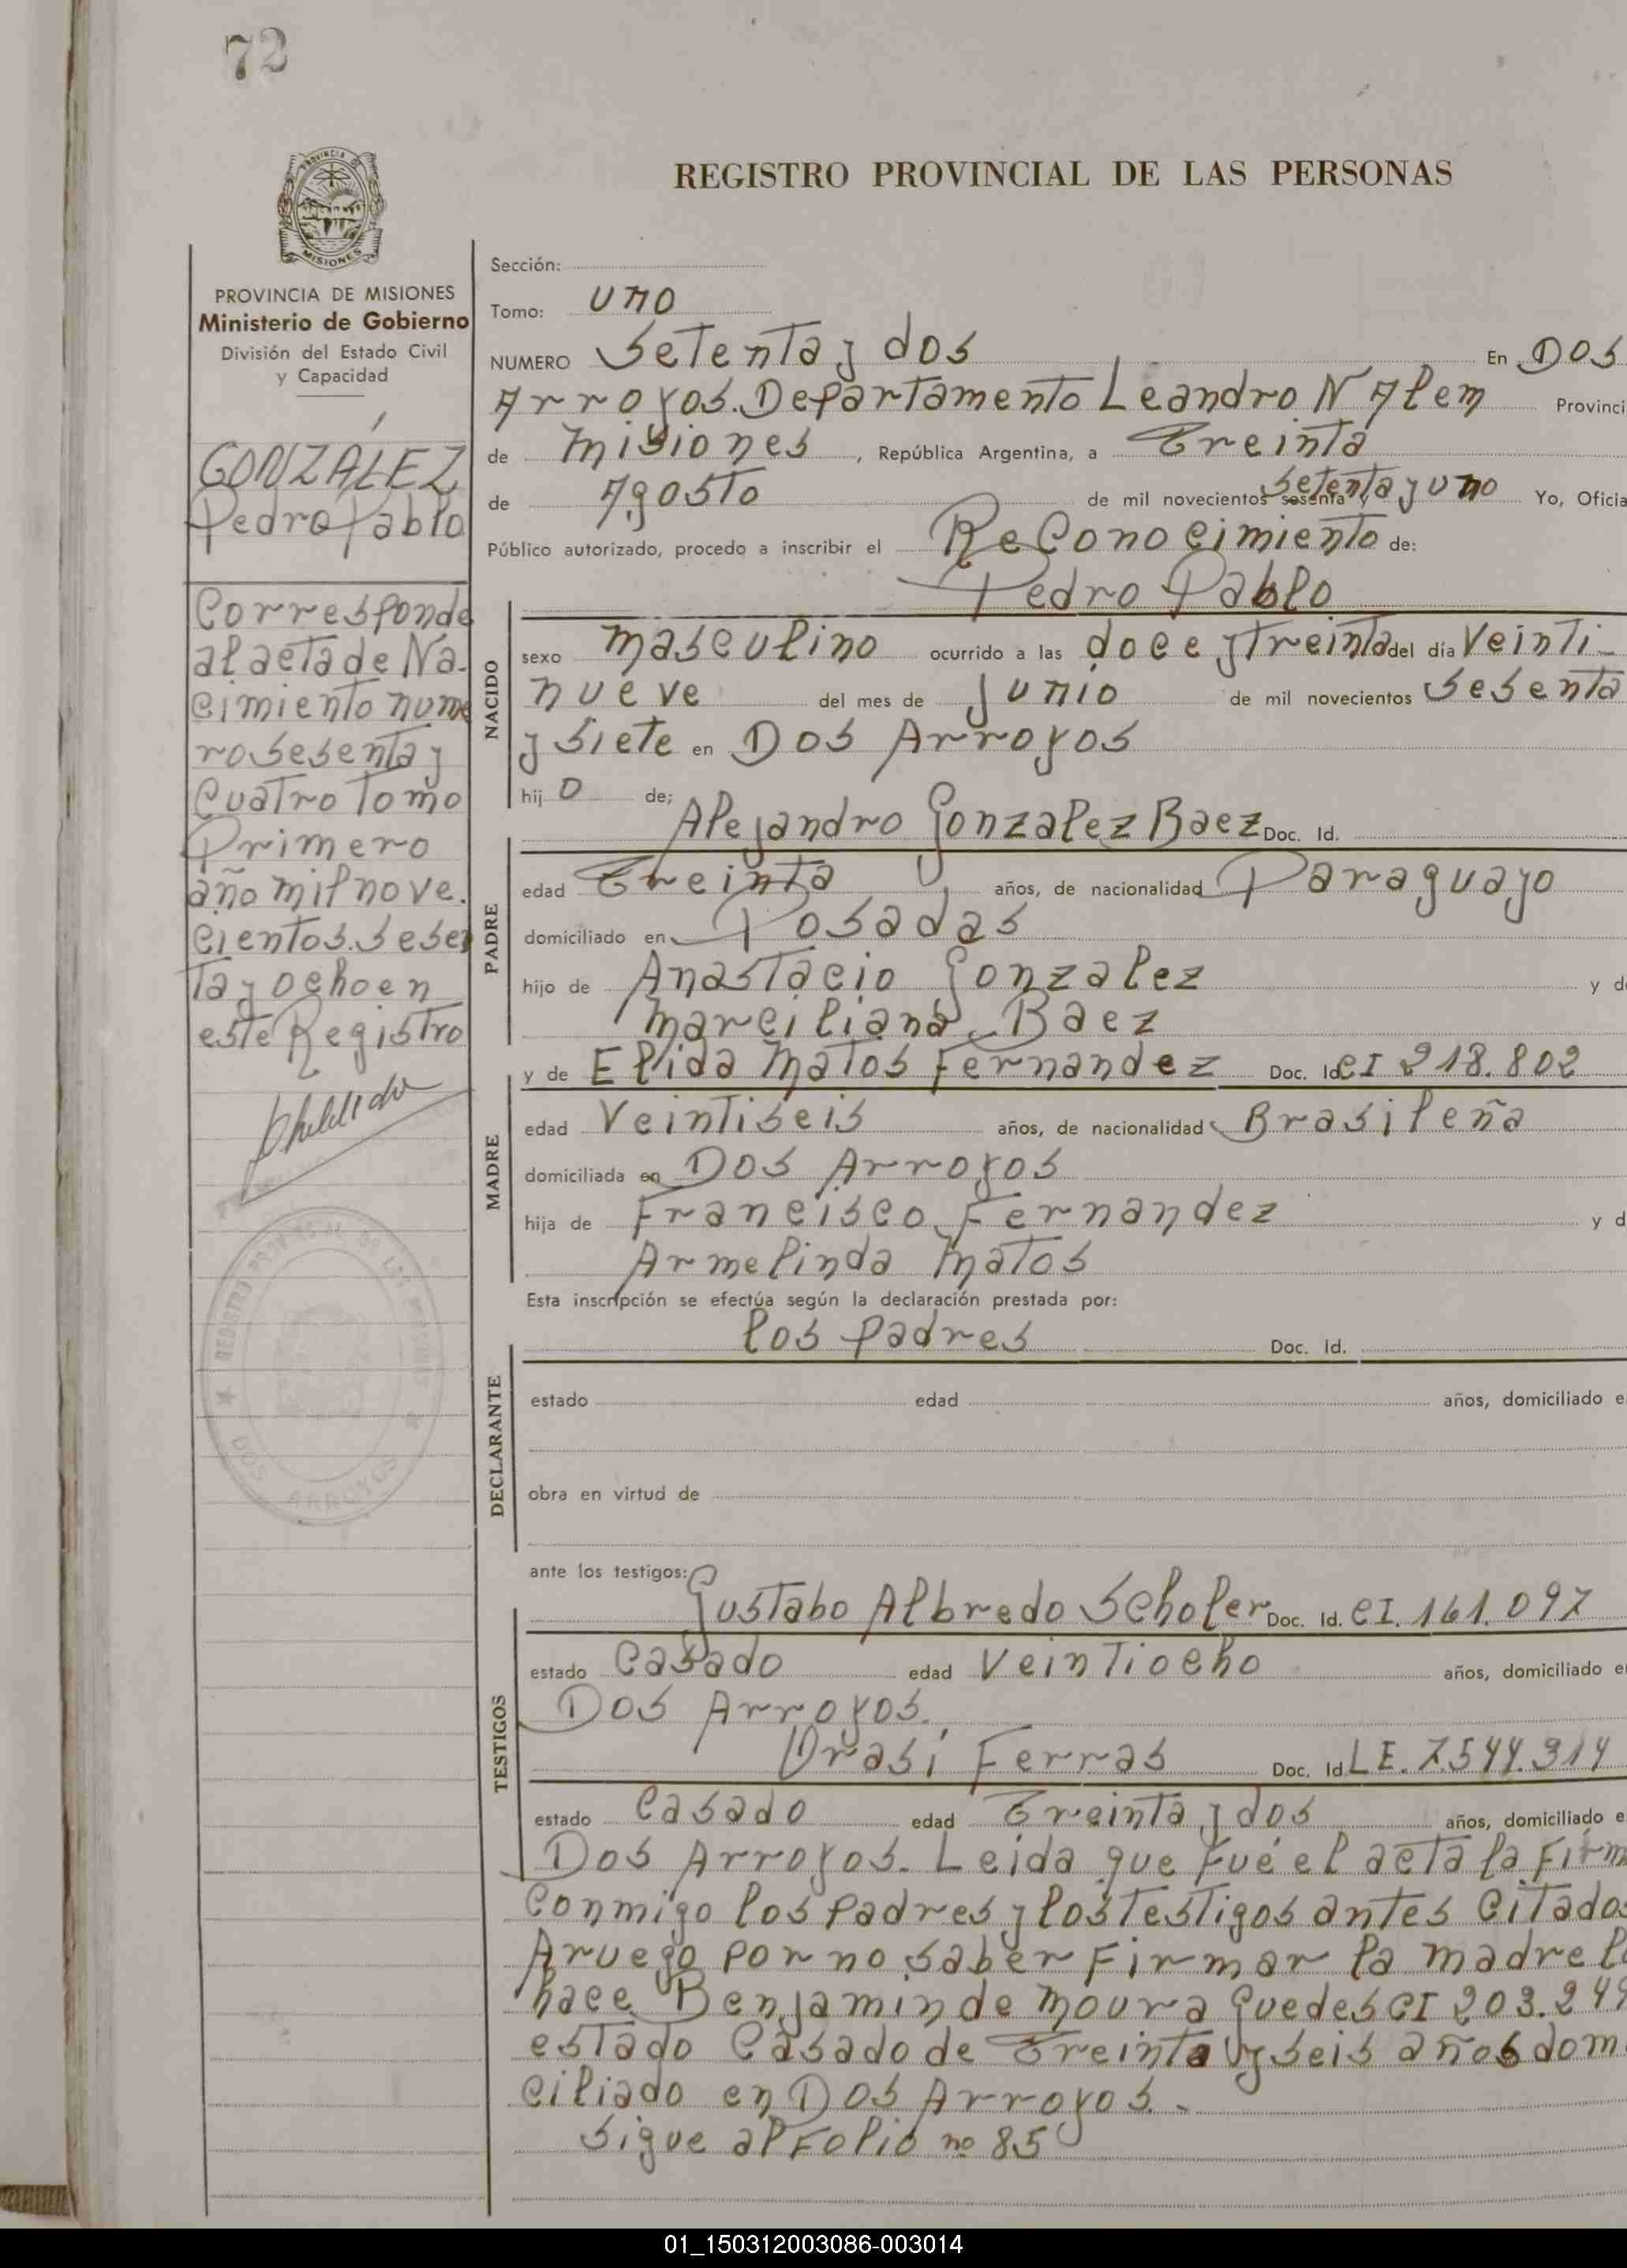 72
PROVINCIA DE
MISIONES
REGISTRO PROVINCIAL DE LAS PERSONAS
PROVINCIA DE MISIONES
Ministerio de Gobierno
División del Estado Civil
y Capacidad
GONZÁLEZ
Pedro Pablo
Corresponde
al acta de Na-
cimiento nume
ro sesenta y
cuatro Tomo
Primero
año mil nove-
cientos sesen
ta y ocho en
este Registro
REGISTRO PROVINCIAL DE LAS PERSONAS
DOS ARROYOS
Sección:
Tomo: uno
NUMERO Setenta y dos En Dos
Arroyos. Departamento Leandro N Alem Provinci
de Misiones, República Argentina, a Treinta
de Agosto de mil novecientos sesenta y setenta y uno Yo, Oficia
Público autorizado, procedo a inscribir el Reconocimiento de:
Pedro Pablo
NACIDO
sexo masculino ocurrido a las doce y treinta del día Veinti-
nueve del mes de Junio de mil novecientos sesenta
y siete en Dos Arroyos
hij o de;
Alejandro Gonzalez Baez Doc. Id.
PADRE
edad Treinta años, de nacionalidad Paraguayo
domiciliado en Posadas
hijo de Anastacio Gonzalez y d
Marciliana Baez
y de Elida Matos Fernandez Doc. Id CI 218.802
MADRE
edad Veintiseis años, de nacionalidad Brasileña
domiciliada en Dos Arroyos
hija de Francisco Fernandez y d
Armelinda Matos
Esta inscripción se efectúa según la declaración prestada por:
los padres Doc. Id.
DECLARANTE
estado edad años, domiciliado e
obra en virtud de
ante los testigos:
Gustabo Albredo Scholer Doc. Id. CI. 161.097
TESTIGOS
estado Casado edad Veintiocho años, domiciliado e
Dos Arroyos.
Orasi Ferras Doc. Id LE. 7.544.314
estado Casado edad Treinta y dos años, domiciliado e
Dos Arroyos. Leida que fué el acta la Firm
conmigo los padres y los testigos antes citados
Aruego por no saber Firmar la madre lo
hace Benjamin de Moura Guedes CI 203.249
estado Casado de Treinta y seis años domi
ciliado en Dos Arroyos.-
Sigue al Folio nº 85
01_150312003086-003014